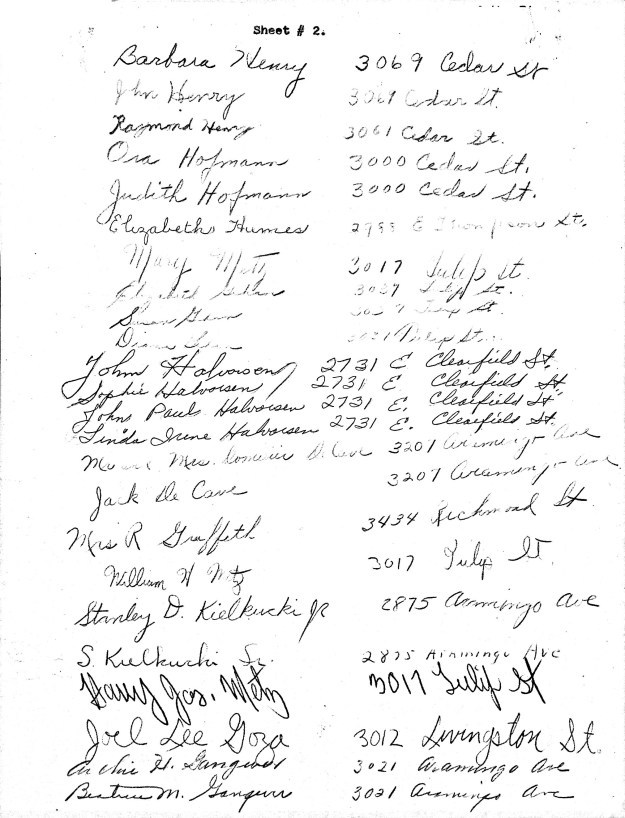 Sheet # 2.
Barbara Henry 3069 Cedar St
John Henry 3069 Cedar St.
Raymond Henry 3061 Cedar St.
Ora Hofmann 3000 Cedar St.
Judith Hofmann 3000 Cedar St.
Elizabeth Humes E Thompson St.
Mary Metz 3017 Tulip St
Elizabeth St.
Susan St.
Tulip St.
John Halvorsen 2731 E Clearfield St.
Sophie Halvorsen 2731 E. Clearfield St.
John Paul Halvorsen 2731 E. Clearfield St
Linda Irene Halvorsen 2731 E. Clearfield St.
Mr and Mrs. De Cave 3207 Aramingo Ave
Jack De Cave 3207 Aramingo Ave
Mrs R Graffeth 3434 Richmond St
William H Metz 3017 Tulip St.
Stanley D. Kielkucki Jr 2875 Aramingo Ave
S. Kielkucki Sr. 2875 Aramingo Ave
Harry Jos. Metz 3017 Tulip St
Joel Lee Goza 3012 Livingston St.
Archie H. 3021 Aramingo Ave
Beatrice M. 3021 Aramingo Ave